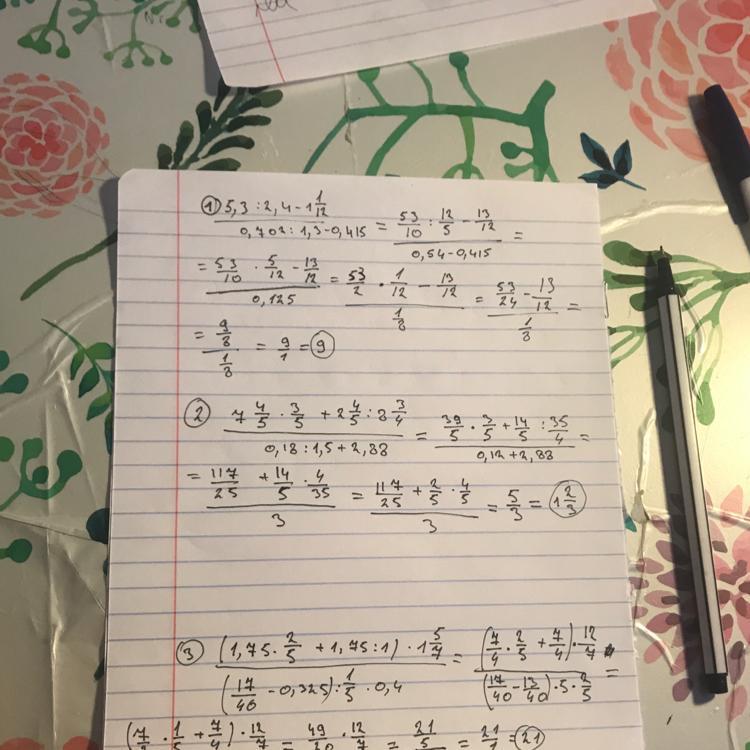 ① 5,3 : 2,4 - 1 1/12 / 0,702 : 1,3 - 0,415 = 53/10 : 12/5 - 13/12 / 0,54 - 0,415 =
= 53/10 · 5/12 - 13/12 / 0,125 = 53/2 · 1/12 - 13/12 / 1/8 = 53/24 - 13/12 / 1/8 =
= 9/8 / 1/8 = 9/1 = 9
② 7 4/5 · 3/5 + 2 4/5 : 8 3/4 / 0,18 : 1,5 + 2,88 = 39/5 · 3/5 + 14/5 : 35/4 / 0,12 + 2,88 =
= 117/25 + 14/5 · 4/35 / 3 = 117/25 + 2/5 · 4/5 / 3 = 5/3 = 1 2/3
③ (1,75 · 2/5 + 1,75 : 1) · 1 5/7 / (17/40 - 0,325) : 1/5 · 0,4 = (7/4 · 2/5 + 7/4) · 12/7 / (17/40 - 13/40) · 5 · 2/5 =
(7/2 · 1/5 + 7/4) · 12/7 = 49/20 · 12/7 = 21/5 = 21/1 = 21